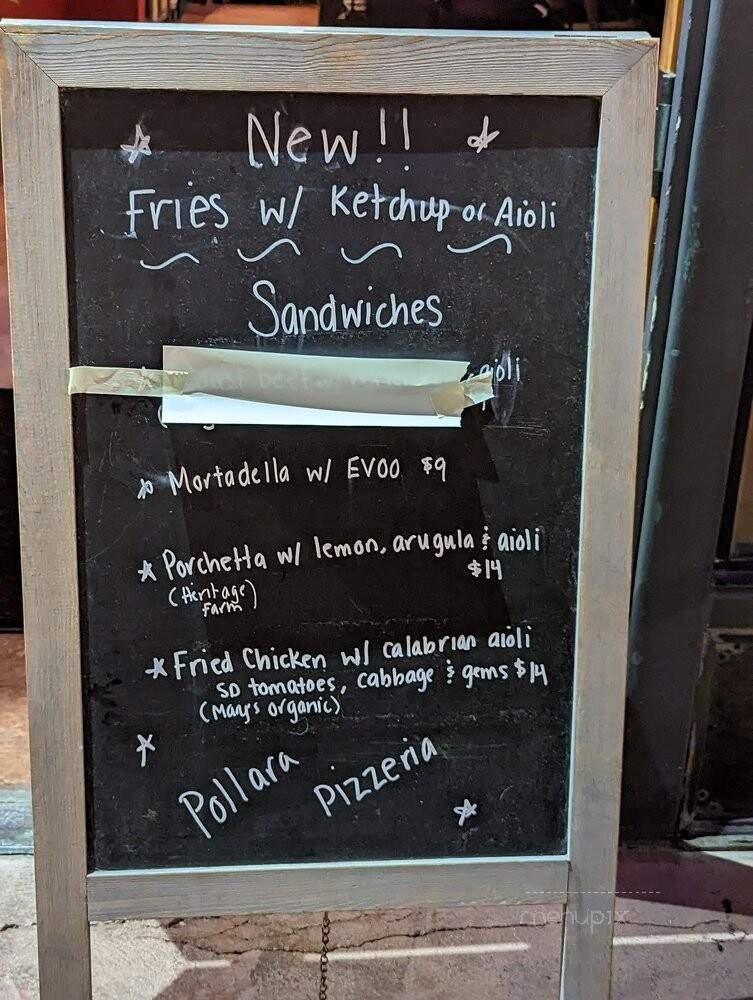 New!!
Fries w/ Ketchup or Aioli
Sandwiches
aioli
Mortadella w/ EVOO $9
Porchetta w/ lemon, arugula & aioli
$14
(Heritage
farm)
Fried Chicken w/ calabrian aioli
SD tomatoes, cabbage & gems $14
(Mary's organic)
Pollara Pizzeria
menupix